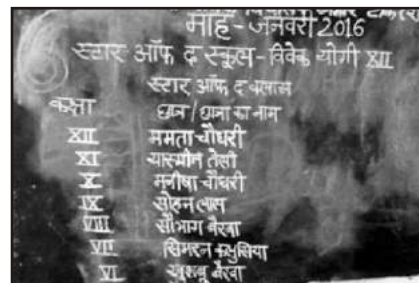 माह - जनवरी 2016
स्टार ऑफ द स्कूल - विवेक योगी XII
स्टार ऑफ द क्लास
कक्षा छात्र / छात्रा का नाम
XII ममता चौधरी
XI यास्मीन तेली
X मनीषा चौधरी
IX सोहन लाल
VIII सौभाग बैरवा
VII सिमरन
VI खुशबू बैरवा